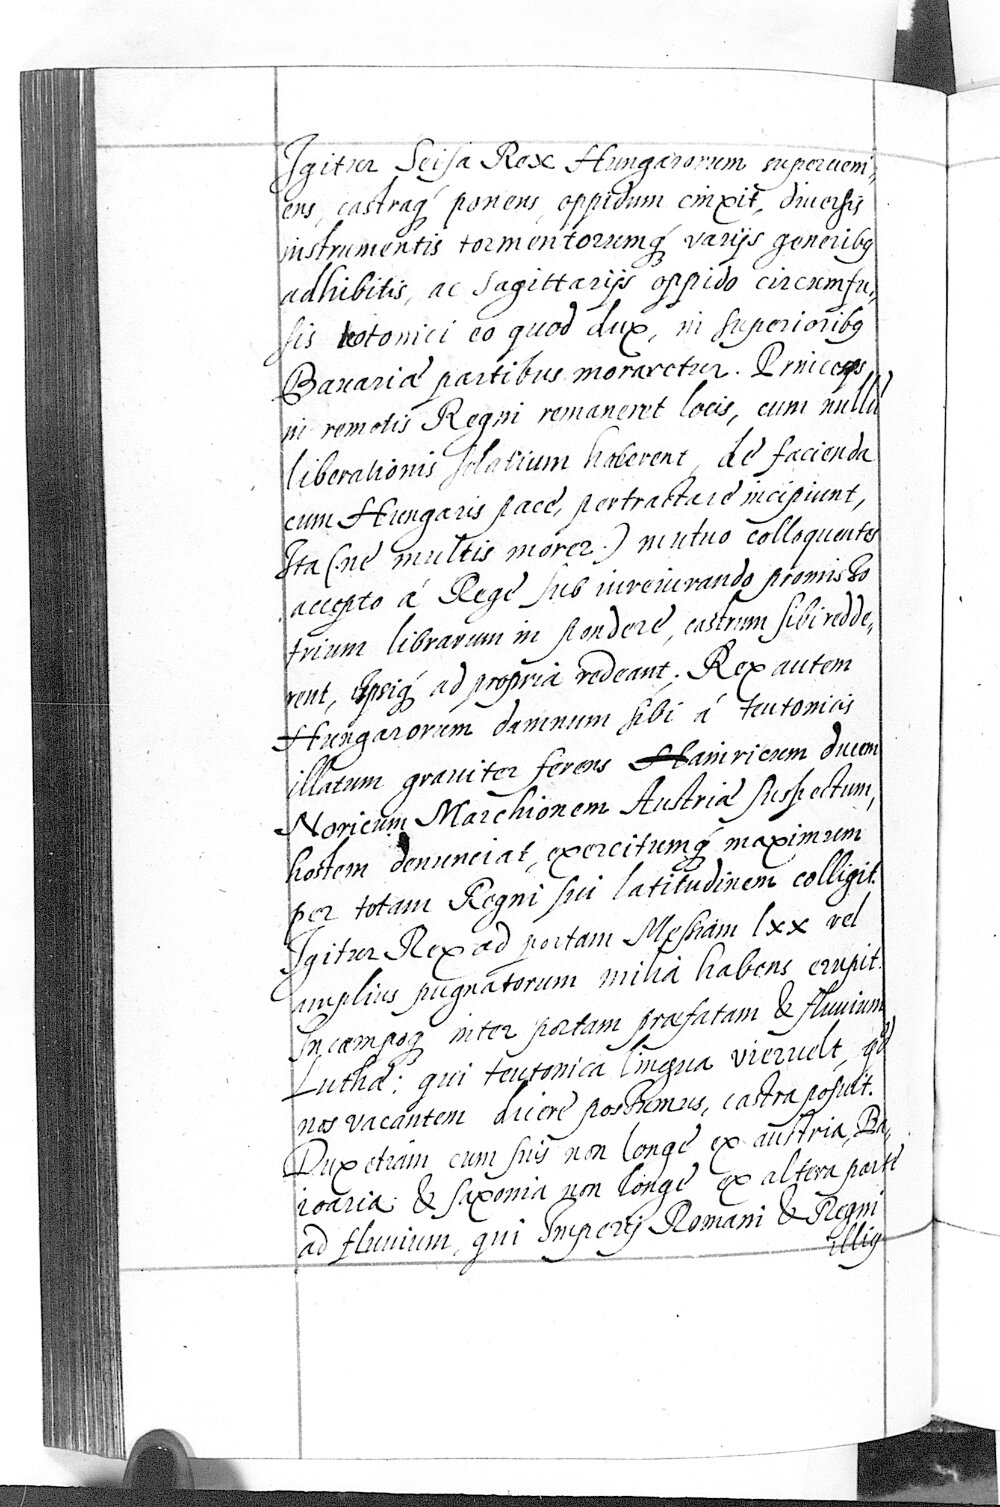 Igitur Seisa Rex Hungarorum superueni,,
ens, castraq́ ponens, oppidum cinxit, diuersis
instrumentis tormentorumq́ varijs generibq
adhibitis, ac sagittarijs oppido circumfu,,
sis totonici eo quod dux, in superioribq
Bauariæ partibus moraretur. Princeps
in remotis Regni remaneret locis, cum nullũ
liberationis solatium haberent, de facienda
cum Hungaris pace, pertractare incipiunt,
Ita (ne multis morer.) mutuo colloquentes
accepto á Rege sub iureiurando promisso
trium librarum in pondere, castrum sibi redde,
rent, ipsiq́ ad propria redeant. Rex autem
Hungarorum damnum sibi á teutonicis
illatum grauiter ferens Hainricum ducem
Noricum Marchionem Austriæ suspectum,
hostem denunciat, exercitumq́ maximum
per totam Regni sui latitudinem colligit.
Igitur Rex ad portam Mesiam lxx vel
amplius pugnatorum milia habens erupit.
In campoq inter portam præfatam & fluuium
Luthá: qui teutonica lingua viervelt, qd
nos vacantem dicere possumus, castra posuit.
Dux etiam cum suis non longe ex austria, Ba,
ioaria, & saxonia non longe ex altera parte
ad fluuium, qui Imperij Romani & Regni
illiq